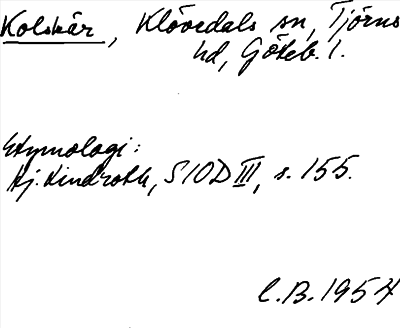 Kolskär, Klövedals sn, Tjörns
hd, Göteb. l.
Etymologi:
Hj. Lindroth, SIOD III, s. 155.
C.B. 1954